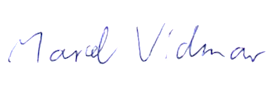 Marcel Vidmar